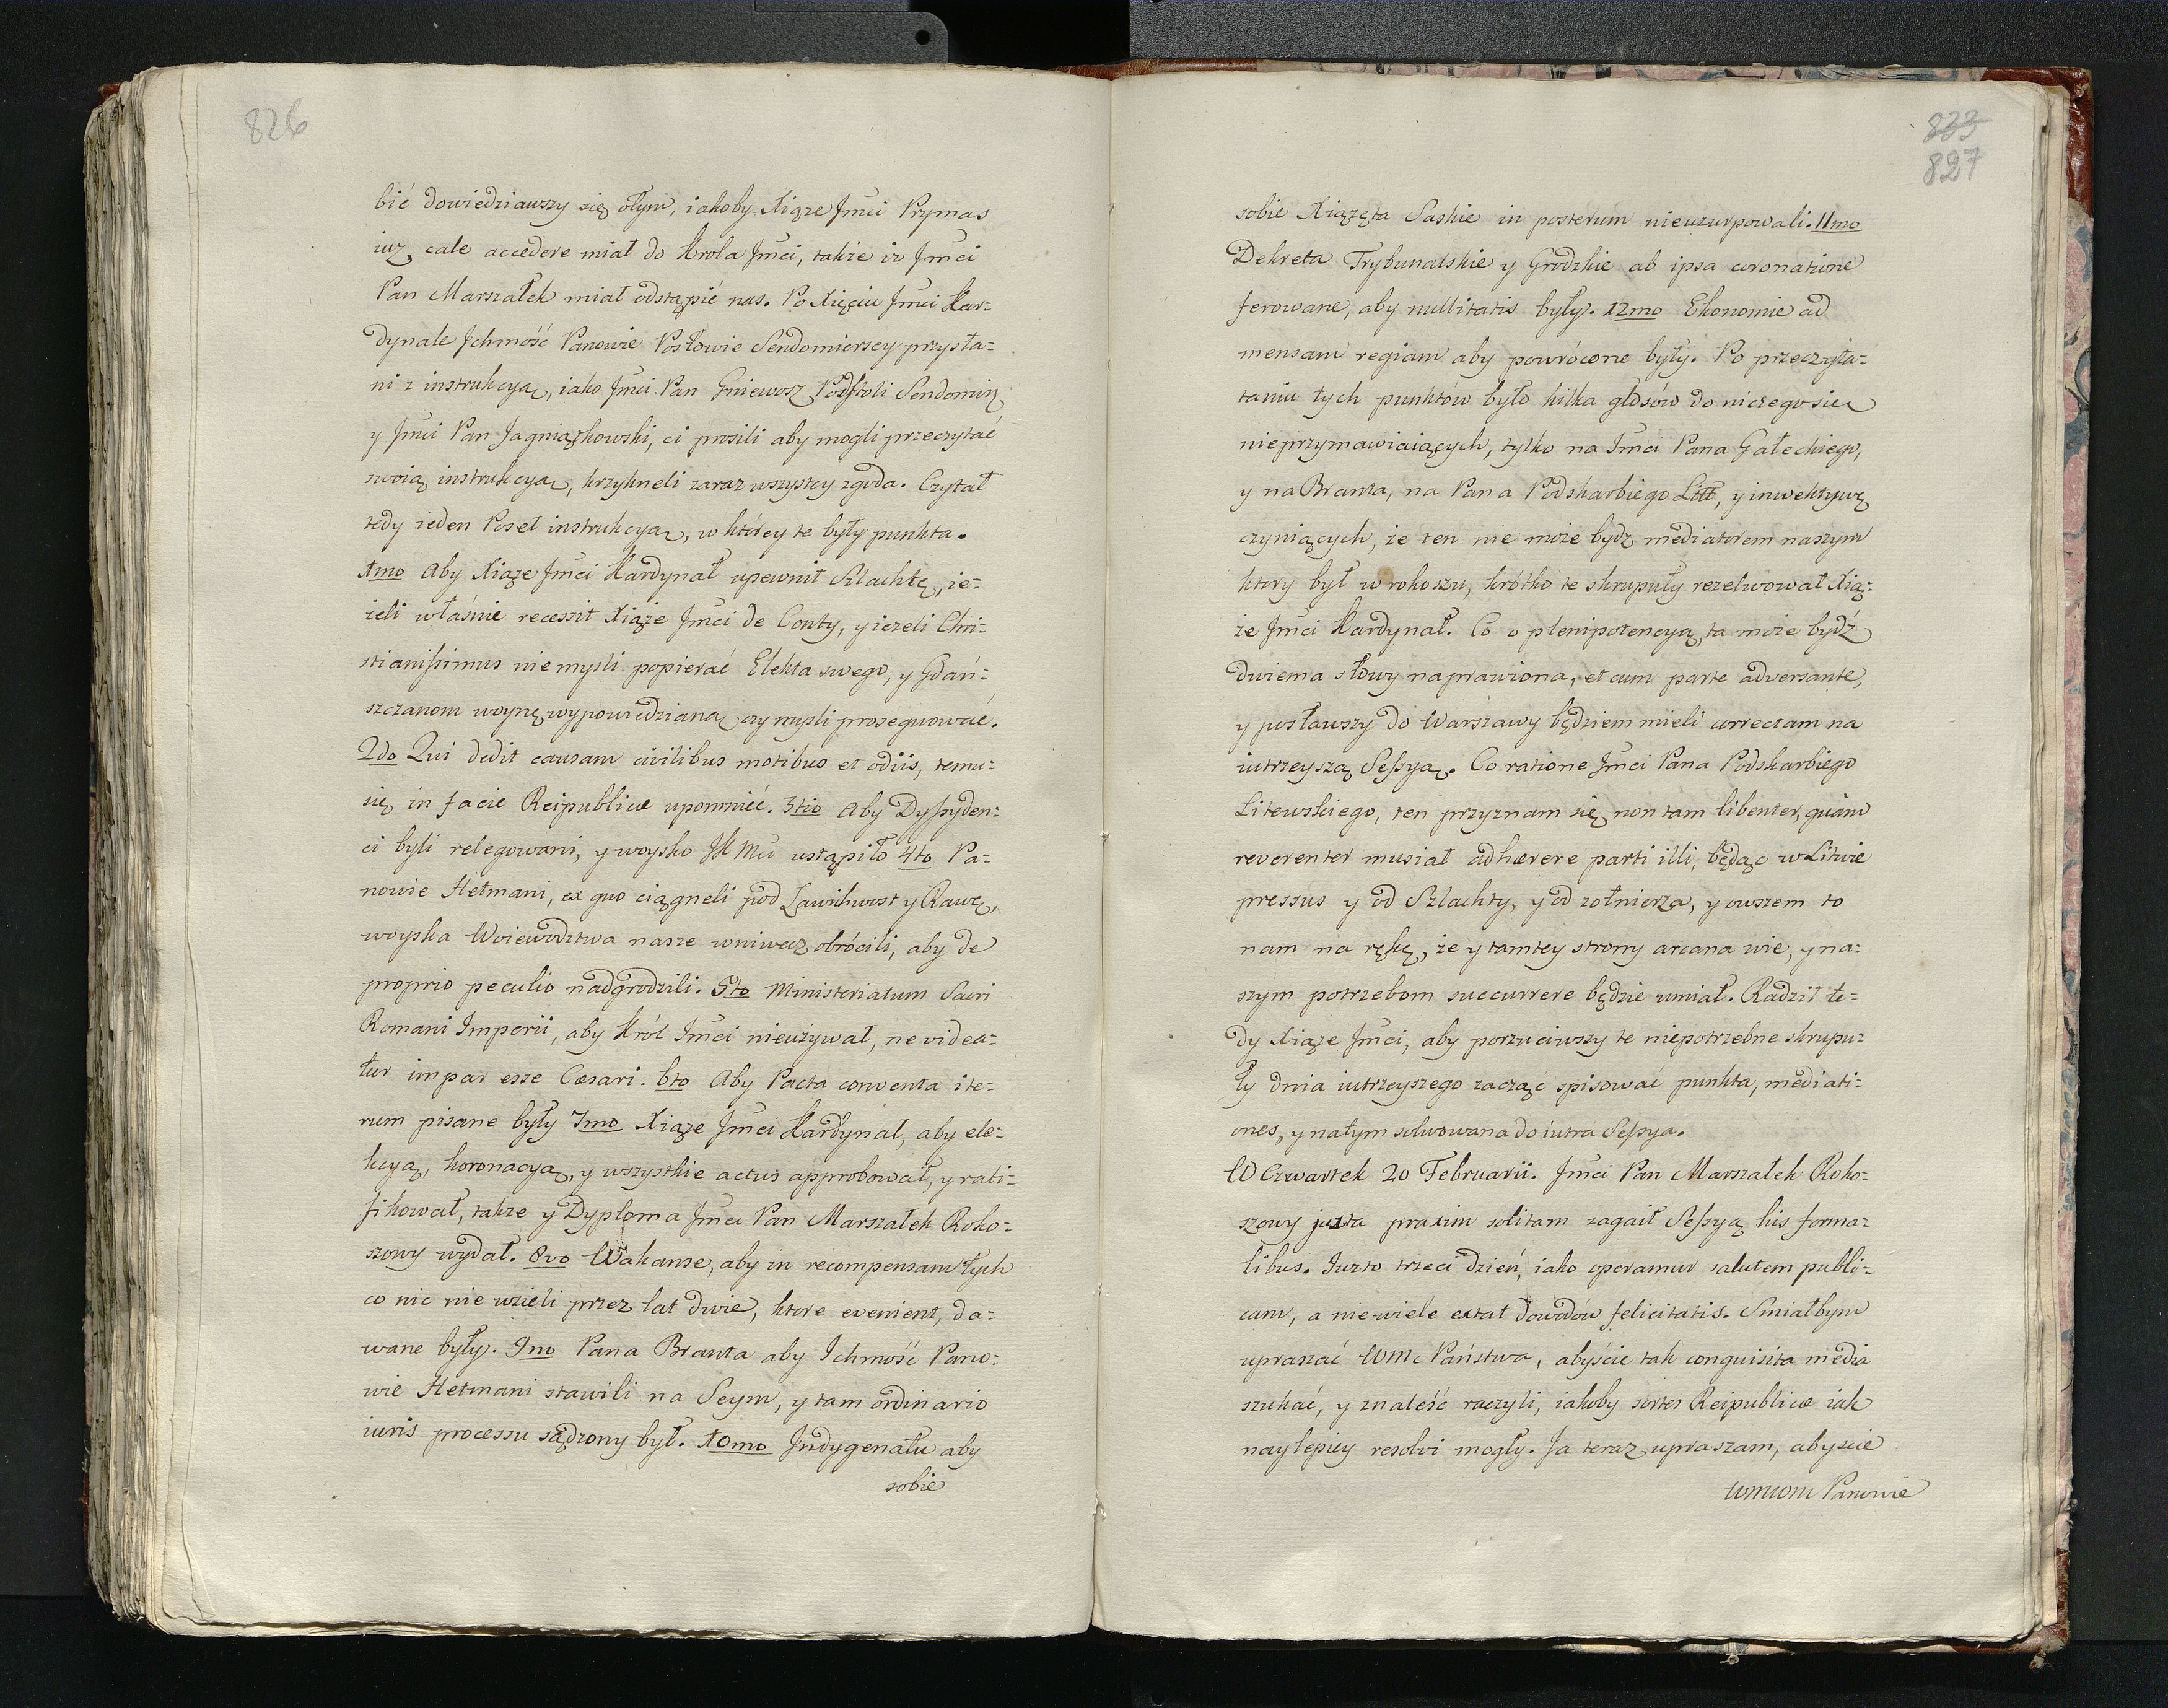 826
bić dowiedziawszy się otym, iakoby Xiąże Jmci Prymas
iuz cale accedere miał do Krola Jmci, takze iz Jmci
Pan Marszałek miał odstąpić nas. Po Xięciu Jmci Kar=
dynale Ichmość Panowie Posłowie Sendomierscy przysła=
ni z instrukcyą, iako Jmci Pan Gniewosz Podstoli Sendomir.
y Jmci Pan Jagniątkowski, ci prosili aby mogli przeczytać
swoią instrukcyą, krzykneli zaraz wszyscy zgoda. Czytał
tedy ieden Poseł instrukcyą, w ktorey te były punkta.
1mo Aby Xiąze Jmci Kardynał upewnił Szlachtę, ie=
żeli właśnie recessit Xiąże Jmci de Conty, y ieżeli Chri=
stianissimus niemysli popierać Elekta swego, y Gdań=
szczanom woynę wypowiedzianą czy mysli prosequować.
2do Qui dedit causam civilibus motibus et odiis, temu=
się in facie Reipublicæ upomnieć. 3tio Aby Dyssyden=
ci byli relegowani, y woysko JKMci ustąpiło 4to Pa=
nowie Hetmani, ex quo ciągneli pod Zawichwost y Rawę,
woyska Woiewodztwa nasze wniwecz obrócili, aby de
proprio peculio nadgrodzili. 5to Ministeriatum Sacri
Romani Imperii, aby Król Jmci nieuzywał, ne videa=
tur impar esse Cæsari. 6to Aby Pacta conventa ite=
rum pisane były 7mo Xiąze Jmci Kardynał, aby ele=
kcyą, koronacyą, y wszystkie actus approbował, y rati=
fikował, takze y Dyploma Jmci Pan Marszałek Roko=
szowy wydał. 8vo Wakanse, aby in recompensam tych
co nic nie wzieli przez lat dwie, ktore evenient, da=
wane były. 9no Pana Branta aby Ichmość Pano=
wie Hetmani stawili na Seym, y tam ordinario
iuris processu sądzony był. 10mo Indygenatu aby
sobie
833
827
sobie Xiążęta Saskie in posterum nieuzurpowali. 11mo
Dekreta Trybunalskie y Grodzkie ab ipsa coronatione
ferowane, aby nullitatis były. 12mo Ekonomie ad
mensam regiam aby powrócone były. Po przeczyta=
taniu tych punktów było kilka głosów do niczego sie
nieprzymawiaiących, tylko na Jmci Pana Gałeckiego,
y na Branta, na Pana Podskarbiego Litt, y inwektywę
czyniących, że ten nie może bydz mediatorem naszym
ktory był w rokoszu, krótko te skrupuły rezelwował Xią=
że Jmci Kardynał. Co o plenipotencyą, ta może bydź
dwiema słowy naprawiona, et cum parte adversante,
y posławszy do Warszawy będziem mieli correctam na
iutrzeyszą Sessyą. Co ratione Jmci Pana Podskarbiego
Litewskiego, ten przyznam się non tam libenter, quàm
reverenter musiał adhærere parti illi, będąc w Litwie
pressus y od Szlachty, y od zołnierza, y owszem to
nam na rękę, że y tamtey strony arcana wie, y na=
szym potrzebom succurrere będzie umiał. Radził te=
dy Xiąze Jmci, aby porzuciwszy te niepotrzebne skrupu=
ły dnia iutrzeyszego zacząć spisować punkta, mediati=
ones, y natym solwowana do iutra Sessya.
W Czwartek 20 Februarii. Jmci Pan Marszałek Roko=
szowy juxta praxim solitam zagaił Sessyą his forma=
libus. Iuzto trzeci dzień, iako operamur salutem publi=
cam, a niewiele extat dowodów felicitatis. Smiałbym
upraszać WMc Państwa, abyście tak conquisita media
szukać, y znaleść raczyli, iakoby sortes Reipublicæ iak
naylepiey resolvi mogły. Ja teraz upraszam, abyscie
WMWM Panowie